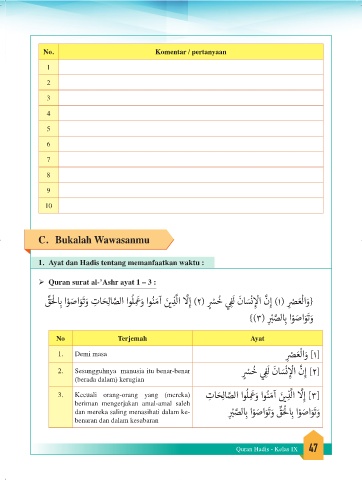 No. Komentar / pertanyaan
1
2
3
4
5
6
7
8
9
10
C. Bukalah Wawasanmu
1. Ayat dan Hadis tentang memanfaatkan waktu :
➢ Quran surat al-'Ashr ayat 1 – 3 :
{وَالْعَصْرِ (١) إِنَّ الْإِنْسَانَ لَفِي خُسْرٍ (٢) إِلَّا الَّذِينَ آمَنُوا وَعَمِلُوا الصَّالِحَاتِ وَتَوَاصَوْا بِالْحَقِّ
وَتَوَاصَوْا بِالصَّبْرِ (٣)}
No Terjemah Ayat
1. Demi masa [١] وَالْعَصْرِ
2. Sesungguhnya manusia itu benar-benar [٢] إِنَّ الْإِنْسَانَ لَفِي خُسْرٍ
(berada dalam) kerugian
3. Kecuali orang-orang yang (mereka) [٣] إِلَّا الَّذِينَ آمَنُوا وَعَمِلُوا الصَّالِحَاتِ
beriman mengerjakan amal-amal saleh
dan mereka saling menasihati dalam ke- وَتَوَاصَوْا بِالْحَقِّ وَتَوَاصَوْا بِالصَّبْرِ
benaran dan dalam kesabaran
Quran Hadis - Kelas IX 47